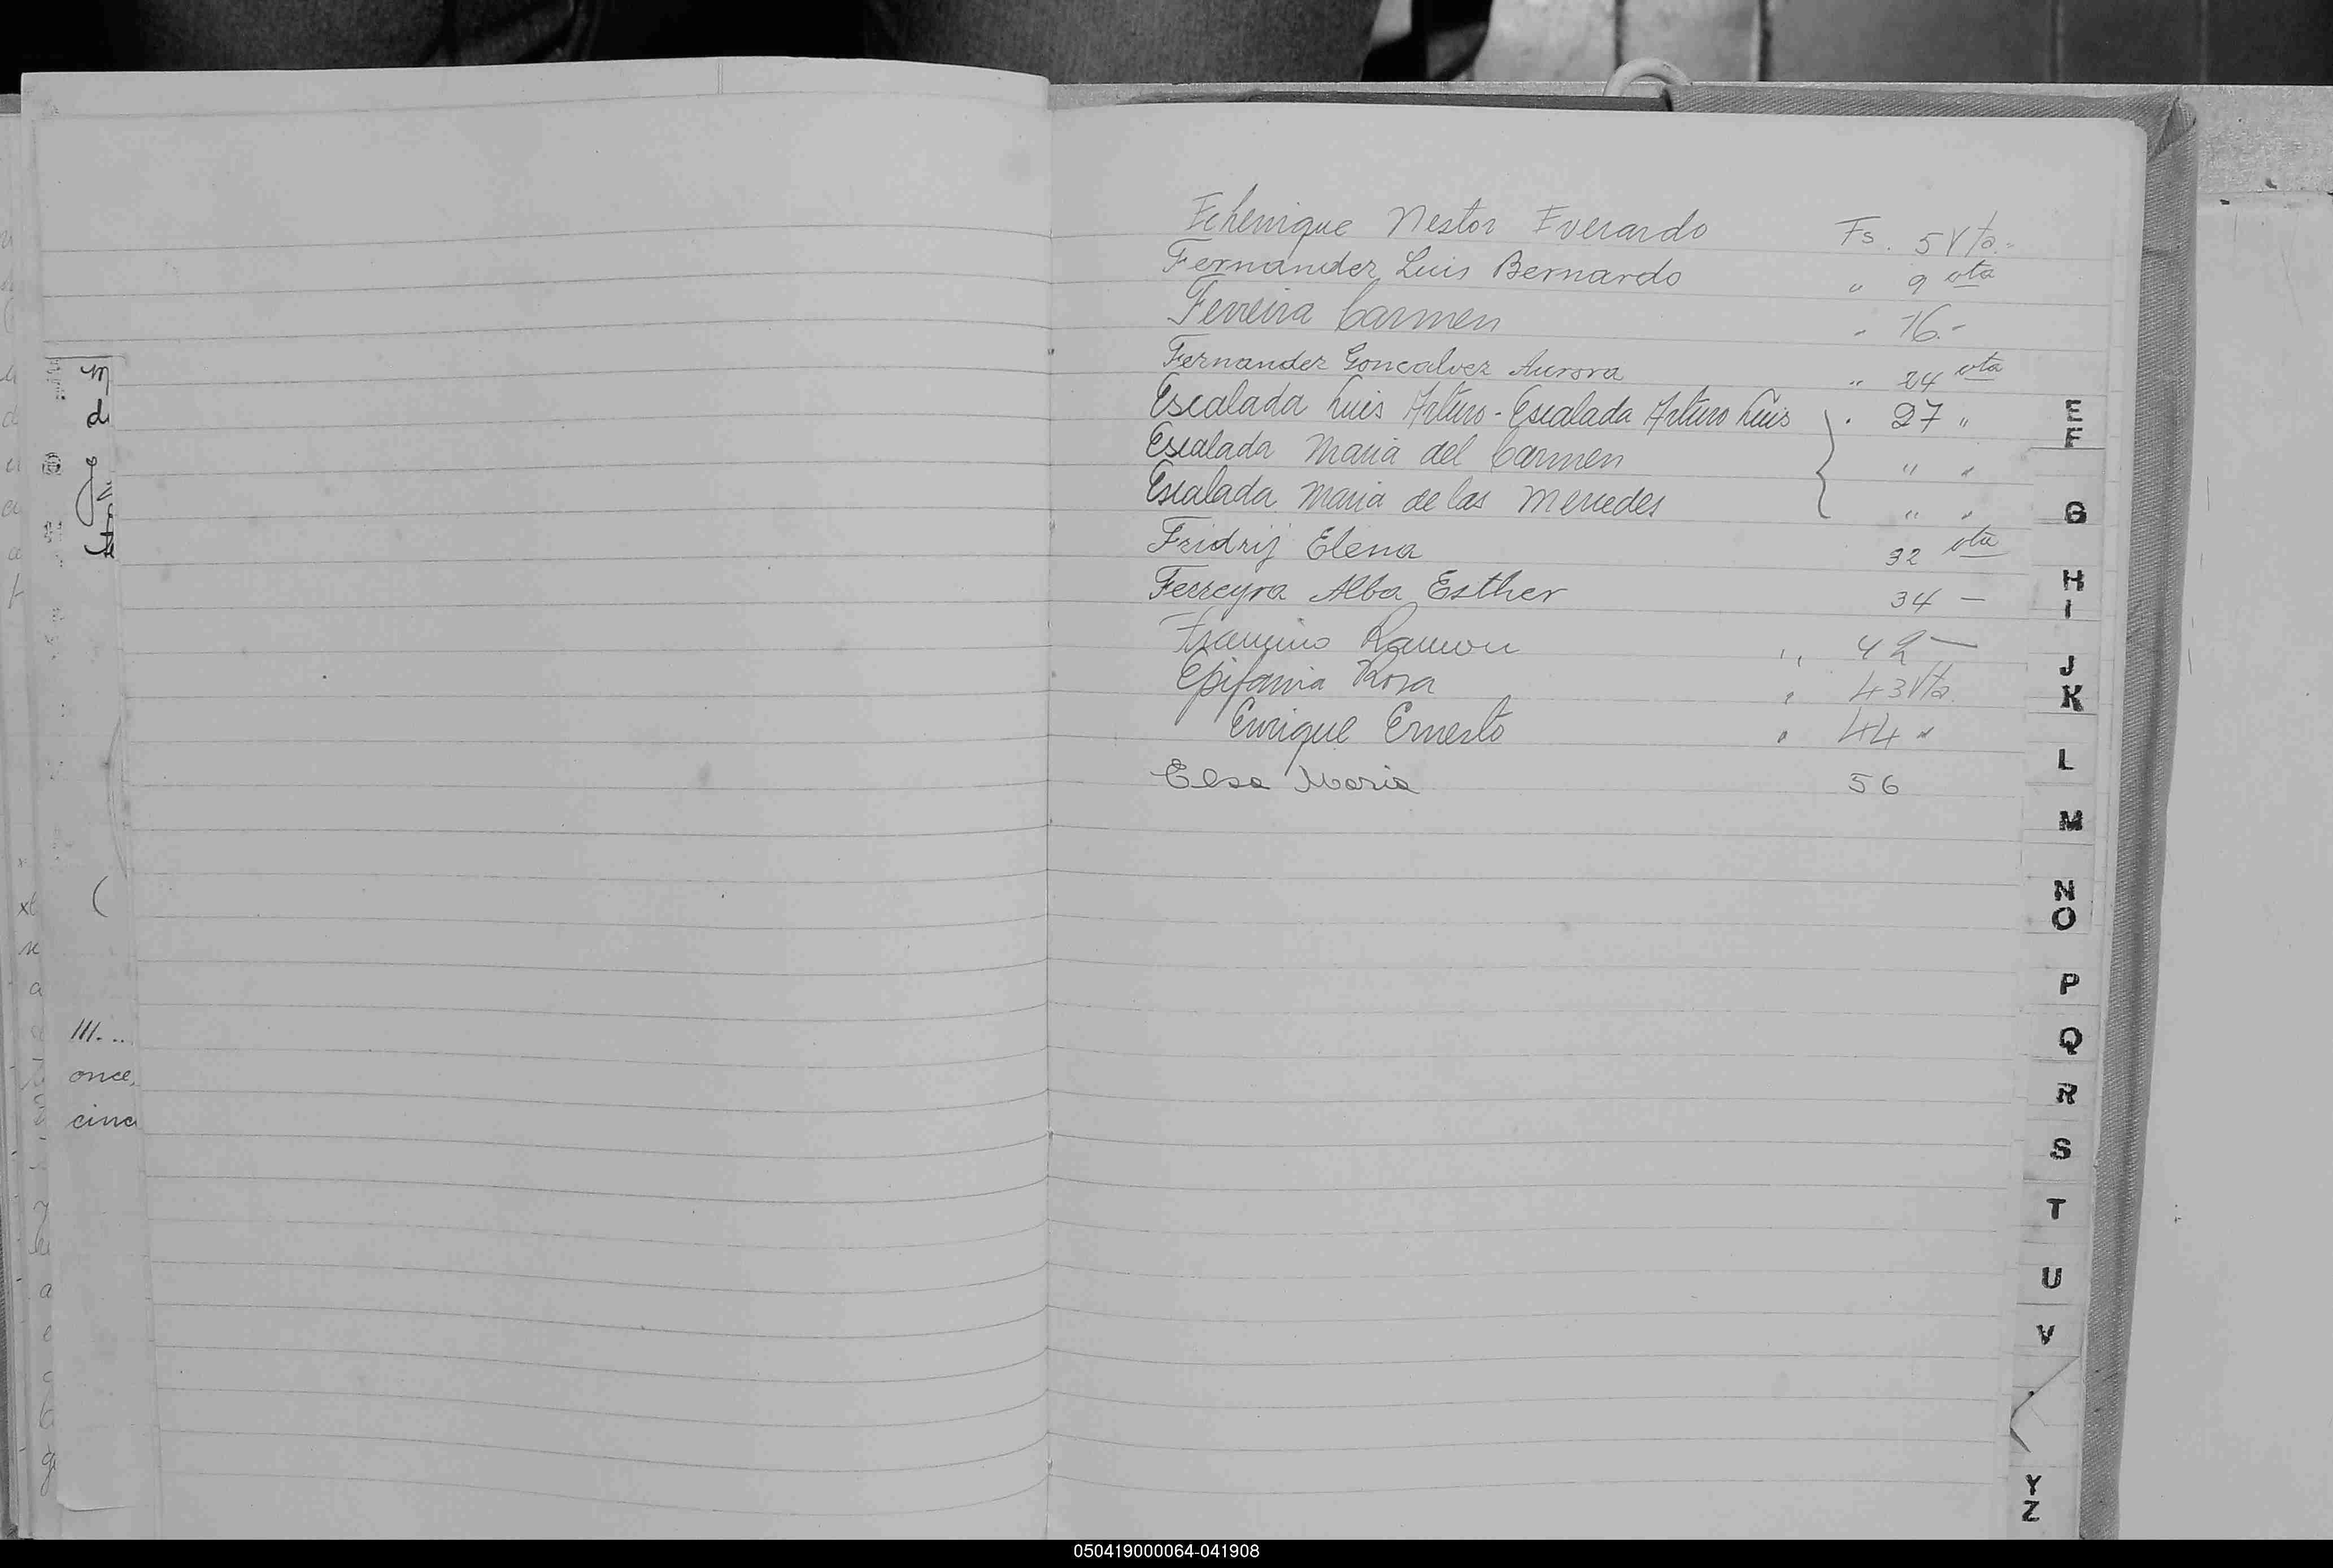 Echenique Nestor Everardo Fs. 5 Vta.
Fernandez Luis Bernardo " 9 vta
Ferreira Carmen " 16.-
Fernandez Goncalvez Aurora " 24 vta
Escalada Luis Arturo - Escalada Arturo Luis " 27 "
Escalada Maria del Carmen " "
Escalada Maria de las Mercedes " "
Fridrij Elena 32 vta
Ferreyra Alba Esther 34 -
Ramon " 42 -
Epifania Rosa " 43 Vta.
Enrique Ernesto " 44 "
Elsa Maria 56
E
F
G
H
I
J
K
L
M
N
O
P
Q
R
S
T
U
V
Y
Z
III. ..
once,
cinc
050419000064-041908